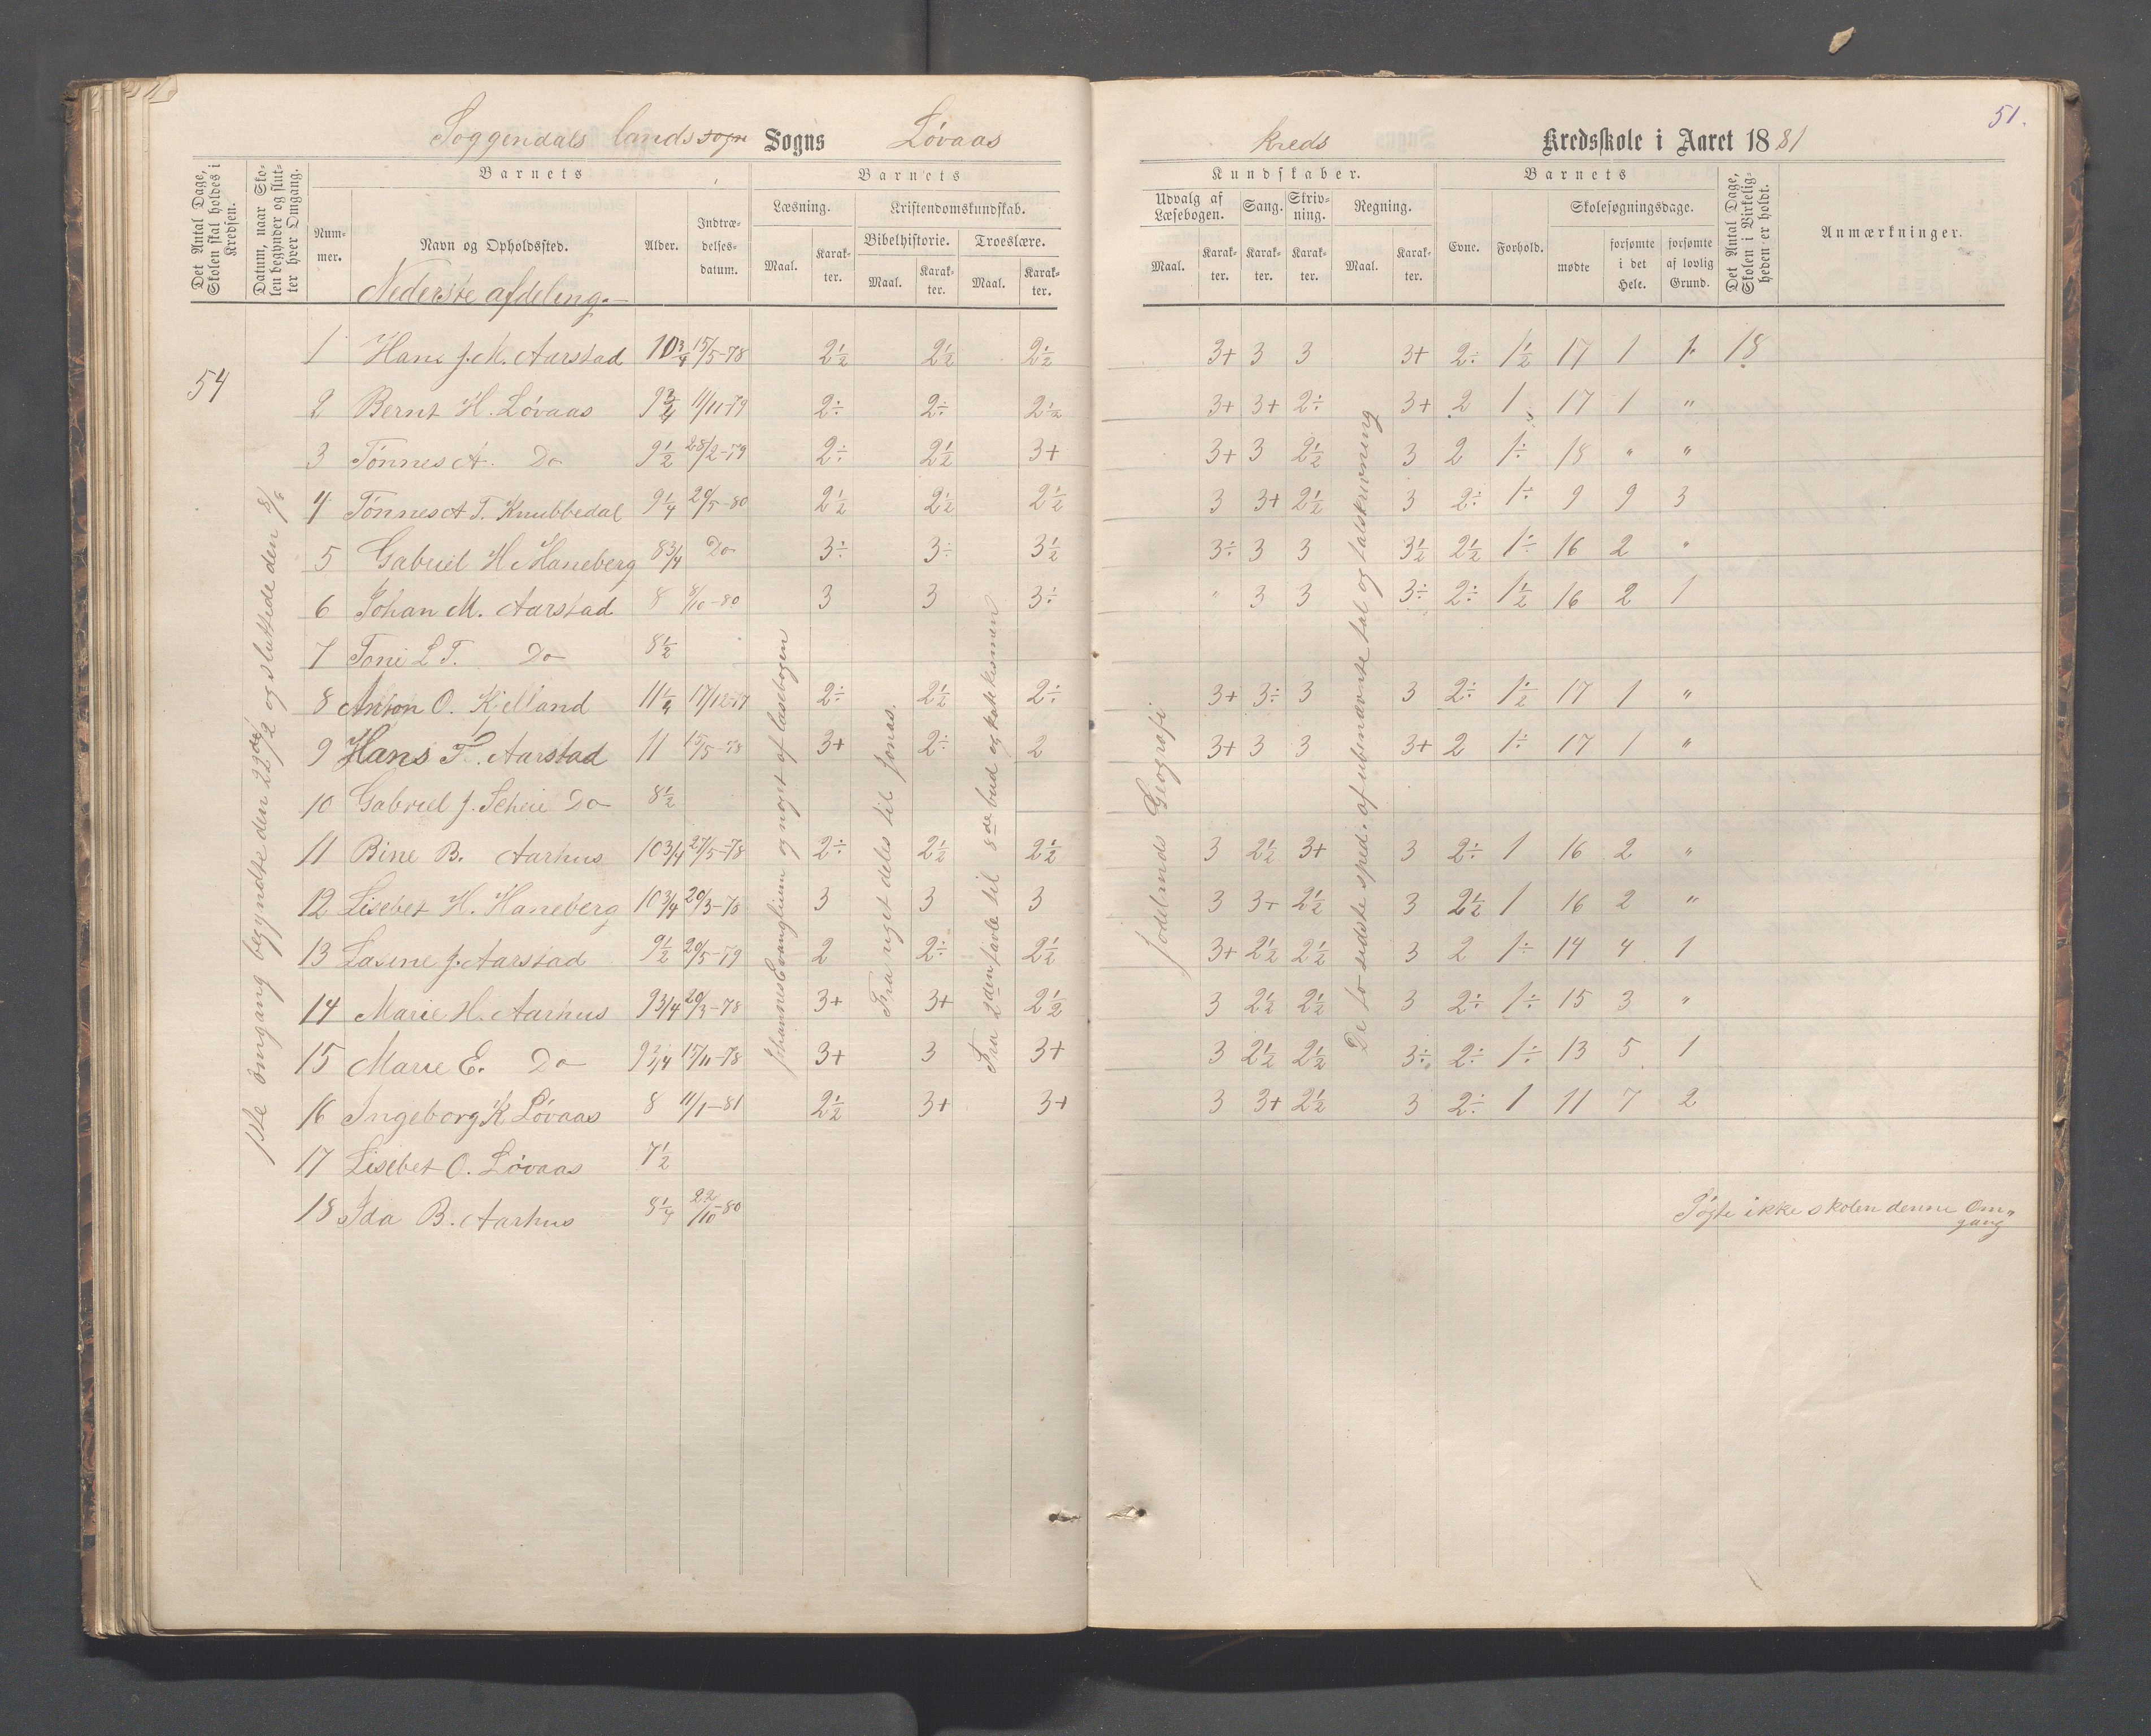 51.
Soggendals lands sogn Sogns Løvaas kreds Kredsskole i Aaret 1881
Det Antal Dage, Skolen skal holdes i Kredsen.
Datum, naar Skolen begynder og slutter hver Omgang.
Barnets
Num-mer.
Navn og Opholdssted.
Alder.
Indtræ-delses-datum.
Barnets
Læsning.
Maal.
Karak-ter.
Kristendomskundskab.
Bibelhistorie.
Maal.
Karak-ter.
Troeslære.
Maal.
Karak-ter.
Kundskaber.
Udvalg af Læsebogen.
Maal.
Karak-ter.
Sang.
Karak-ter.
Skriv-ning.
Karak-ter.
Regning.
Maal.
Karak-ter.
Barnets
Evne.
Forhold.
Skolesøgningsdage.
mødte
forsømte i det Hele.
forsømte af lovlig Grund.
Det Antal Dage, Skolen i Virkelig-heden er holdt.
Anmærkninger.
Nederste afdeling.
54
1ste omgang begyndte den 22de/2 og sluttede den
Johannes Evanglium og noget af læsebogen
Fra riget deles til Jonas.
Fra 2den tavle til 8de bud og katekismen
Jodelands Geografi
De fo sidste sped. af ubenævnte tal og talskrivning
1 Hans J. M. Aarstad 10 3/4 15/5-78 2½ 2½ 2½ 3+ 3 3 3+ 2÷ 1½ 17 1 1. 18
2 Bernt H. Løvaas 9 3/4 11/11-79 2÷ 2÷ 2½ 3+ 3+ 2÷ 3+ 2 1 17 1 "
3 Tønnes A. Do 9½ 28/2-79 2÷ 2½ 3+ 3+ 3 2½ 3 2 1÷ 18 " "
4 Tønnes A T. Knubbedal 9¼ 20/5-80 2½ 2½ 2½ 3 3+ 2½ 3 2÷ 1÷ 9 9 3
5 Gabriel H Haneberg 8 3/4 Do 3÷ 3÷ 3½ 3÷ 3 3 3½ 2½ 1÷ 16 2 "
6 Johan M. Aarstad 8 8/10-80 3 3 3÷ " 3 3 3÷ 2÷ 1½ 16 2 1
7 Toni L T. Do 8½
8 Anton O. Kjelland 11¼ 17/12-77 2÷ 2½ 2÷ 3+ 3÷ 3 3 2÷ 1½ 17 1 "
9 Hans T. Aarstad 11 15/5-78 3+ 2÷ 2 3+ 3 3 3+ 2 1÷ 17 1 "
10 Gabriel J. Scheie Do 8½
11 Bine B. Aarhus 10 3/4 27/5-78 2÷ 2½ 2½ 3 2½ 3+ 3 2÷ 1 16 2 "
12 Lisebet H. Haneberg 10 3/4 20/3-78 3 3 3 3 3+ 2½ 3 2½ 1 16 2 "
13 Lasine J. Aarstad 9½ 20/5-79 2 2÷ 2½ 3+ 2½ 2½ 3 2 1÷ 14 4 1
14 Marie H. Aarhus 9 3/4 20/3-78 3+ 3+ 2½ 3 2½ 2½ 3 2÷ 1÷ 15 3 "
15 Marie E. Do 9 3/4 15/11-78 3+ 3 3+ 3 2½ 2½ 3÷ 2÷ 1÷ 13 5 1
16 Ingeborg K Løvaas 8 11/1-81 2½ 3+ 3+ 3 3+ 2½ 3 2÷ 1 11 7 2
17 Lisebet O. Løvaas 7½
18 Ida B. Aarhus 8¼ 22/10-80 Søgte ikke skolen denne Om-
gang